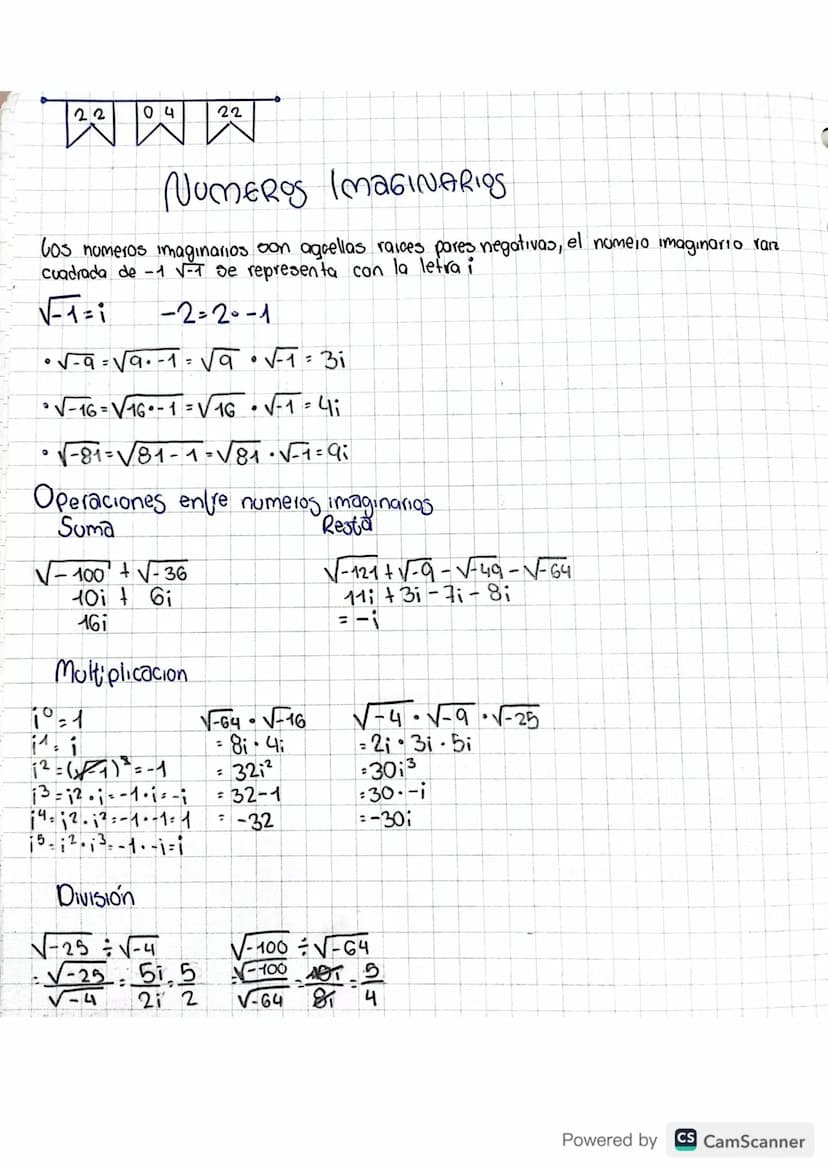 22 04 22
NUMEROS IMAGINARIOS
Los numeros imaginarios son aquellas raices pares negativas, el numero imaginario raiz
cuadrada de -1 √-1 se representa con la letra i
√-1 = i -2 = 2 • -1
• √-9 = √9 • -1 = √9 • √-1 = 3i
• √-16 = √16 • -1 = √16 • √-1 = 4i
• √-81 = √81 - 1 = √81 • √-1 = 9i
Operaciones entre numeros imaginarios
Suma Resta
√-100 + √-36 √-121 + √-9 - √-49 - √-64
10i + 6i 11i + 3i - 7i - 8i
16i = -i
Multiplicacion
i⁰ = 1 √-64 • √-16 √-4 • √-9 • √-25
i¹ = i = 8i • 4i = 2i • 3i • 5i
i² = (√-1)² = -1 = 32i² = 30i³
i³ = i² • i = -1 • i = -i = 32-1 = 30 • -i
i⁴ = i² • i² = -1 • -1 = 1 = -32 = -30i
i⁵ = i² • i³ = -1 • -i = i
División
√-25 ÷ √-4 √-100 ÷ √-64
= √-25/√-4 = 5i/2i = 5/2 = √-100/√-64 = 10i/8i = 5/4
Powered by CS CamScanner